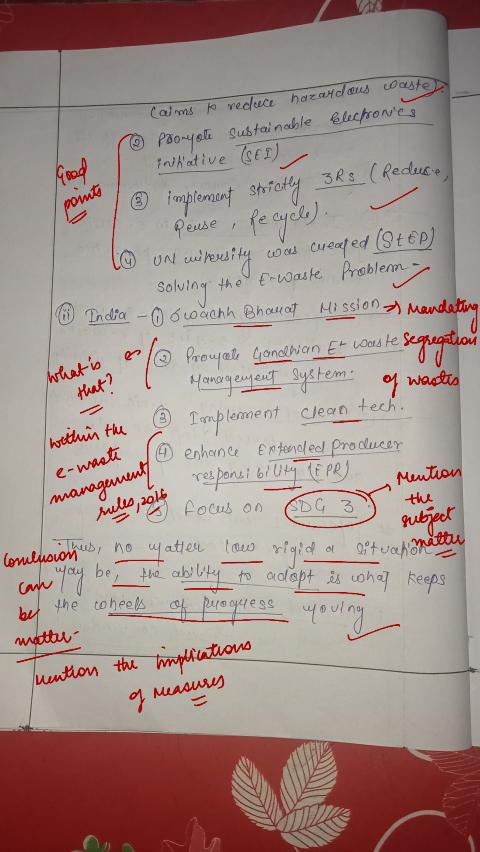 (aims to reduce hazardous waste).
② Promote Sustainable Electronics
initiative (SEI)
Good
points
③ implement strictly 3Rs (Reduce,
Reuse, Recycle).
④ UN university was created (StEP)
solving the E-waste Problem -
(ii) India - ① Swachh Bharat Mission → Mandating
② Promote Gandhian E-waste segregation
Management System. of wastes
What is
that?
③ Implement clean tech.
④ enhance Extended Producer
responsibility (EPR)
within the
e-waste
management
rules, 2016
⑤ Focus on SDG 3.
Mention
the
subject
matter
Thus, no matter how rigid a situation
may be, the ability to adopt is what keeps
the wheels of progress moving
Conclusion
can
be
matter-
mention the implications
of measures